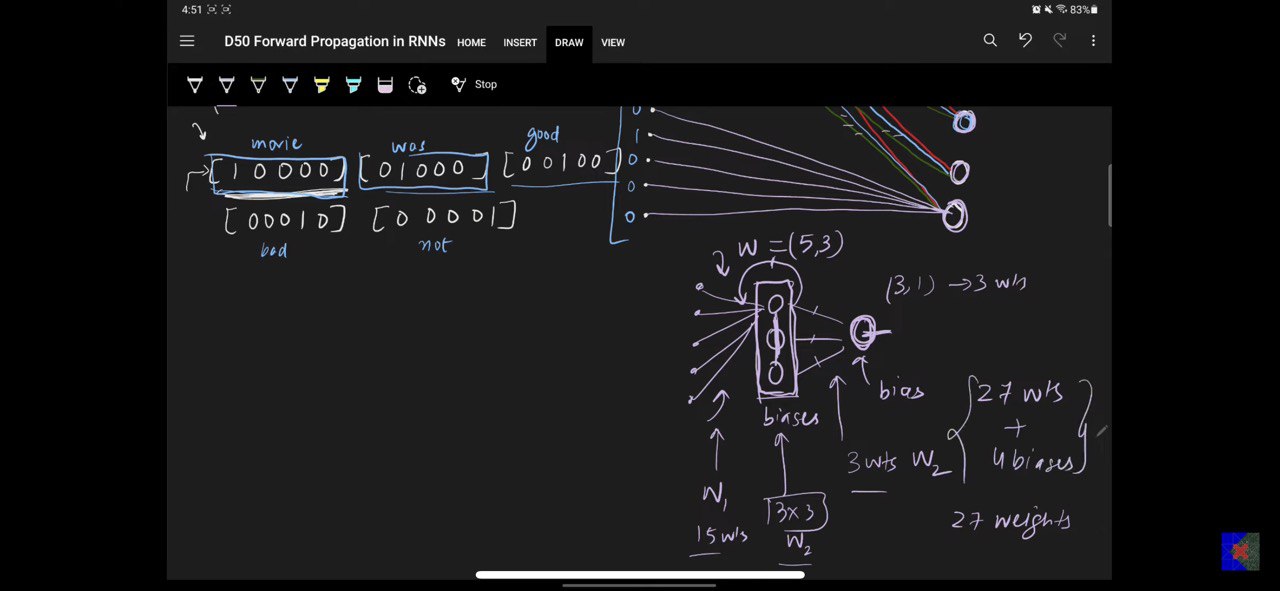 4:51
83%
D50 Forward Propagation in RNNs HOME INSERT DRAW VIEW
Stop
movie was good
[ 1 0 0 0 0 ] [ 0 1 0 0 0 ] [ 0 0 1 0 0 ]
[ 0 0 0 1 0 ] [ 0 0 0 0 1 ]
bad not
0
1
0
0
0
W = (5,3)
(3,1) → 3 wts
bias
biases
3 wts W2
27 wts
+
4 biases
W1
15 wts
3x3
W2
27 weights